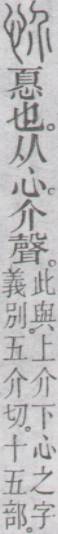 忦 𢝊也。从心。介聲。
此與上介下心之字
義別。五介切。十五部。